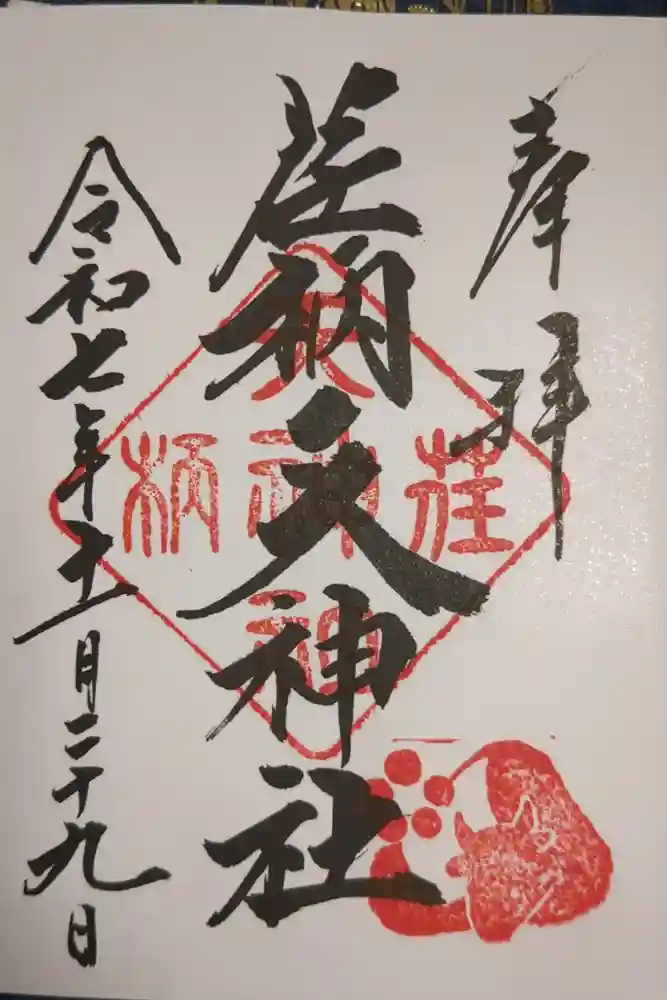 奉拝
荏柄天神社
令和七年十一月二十九日
荏
柄